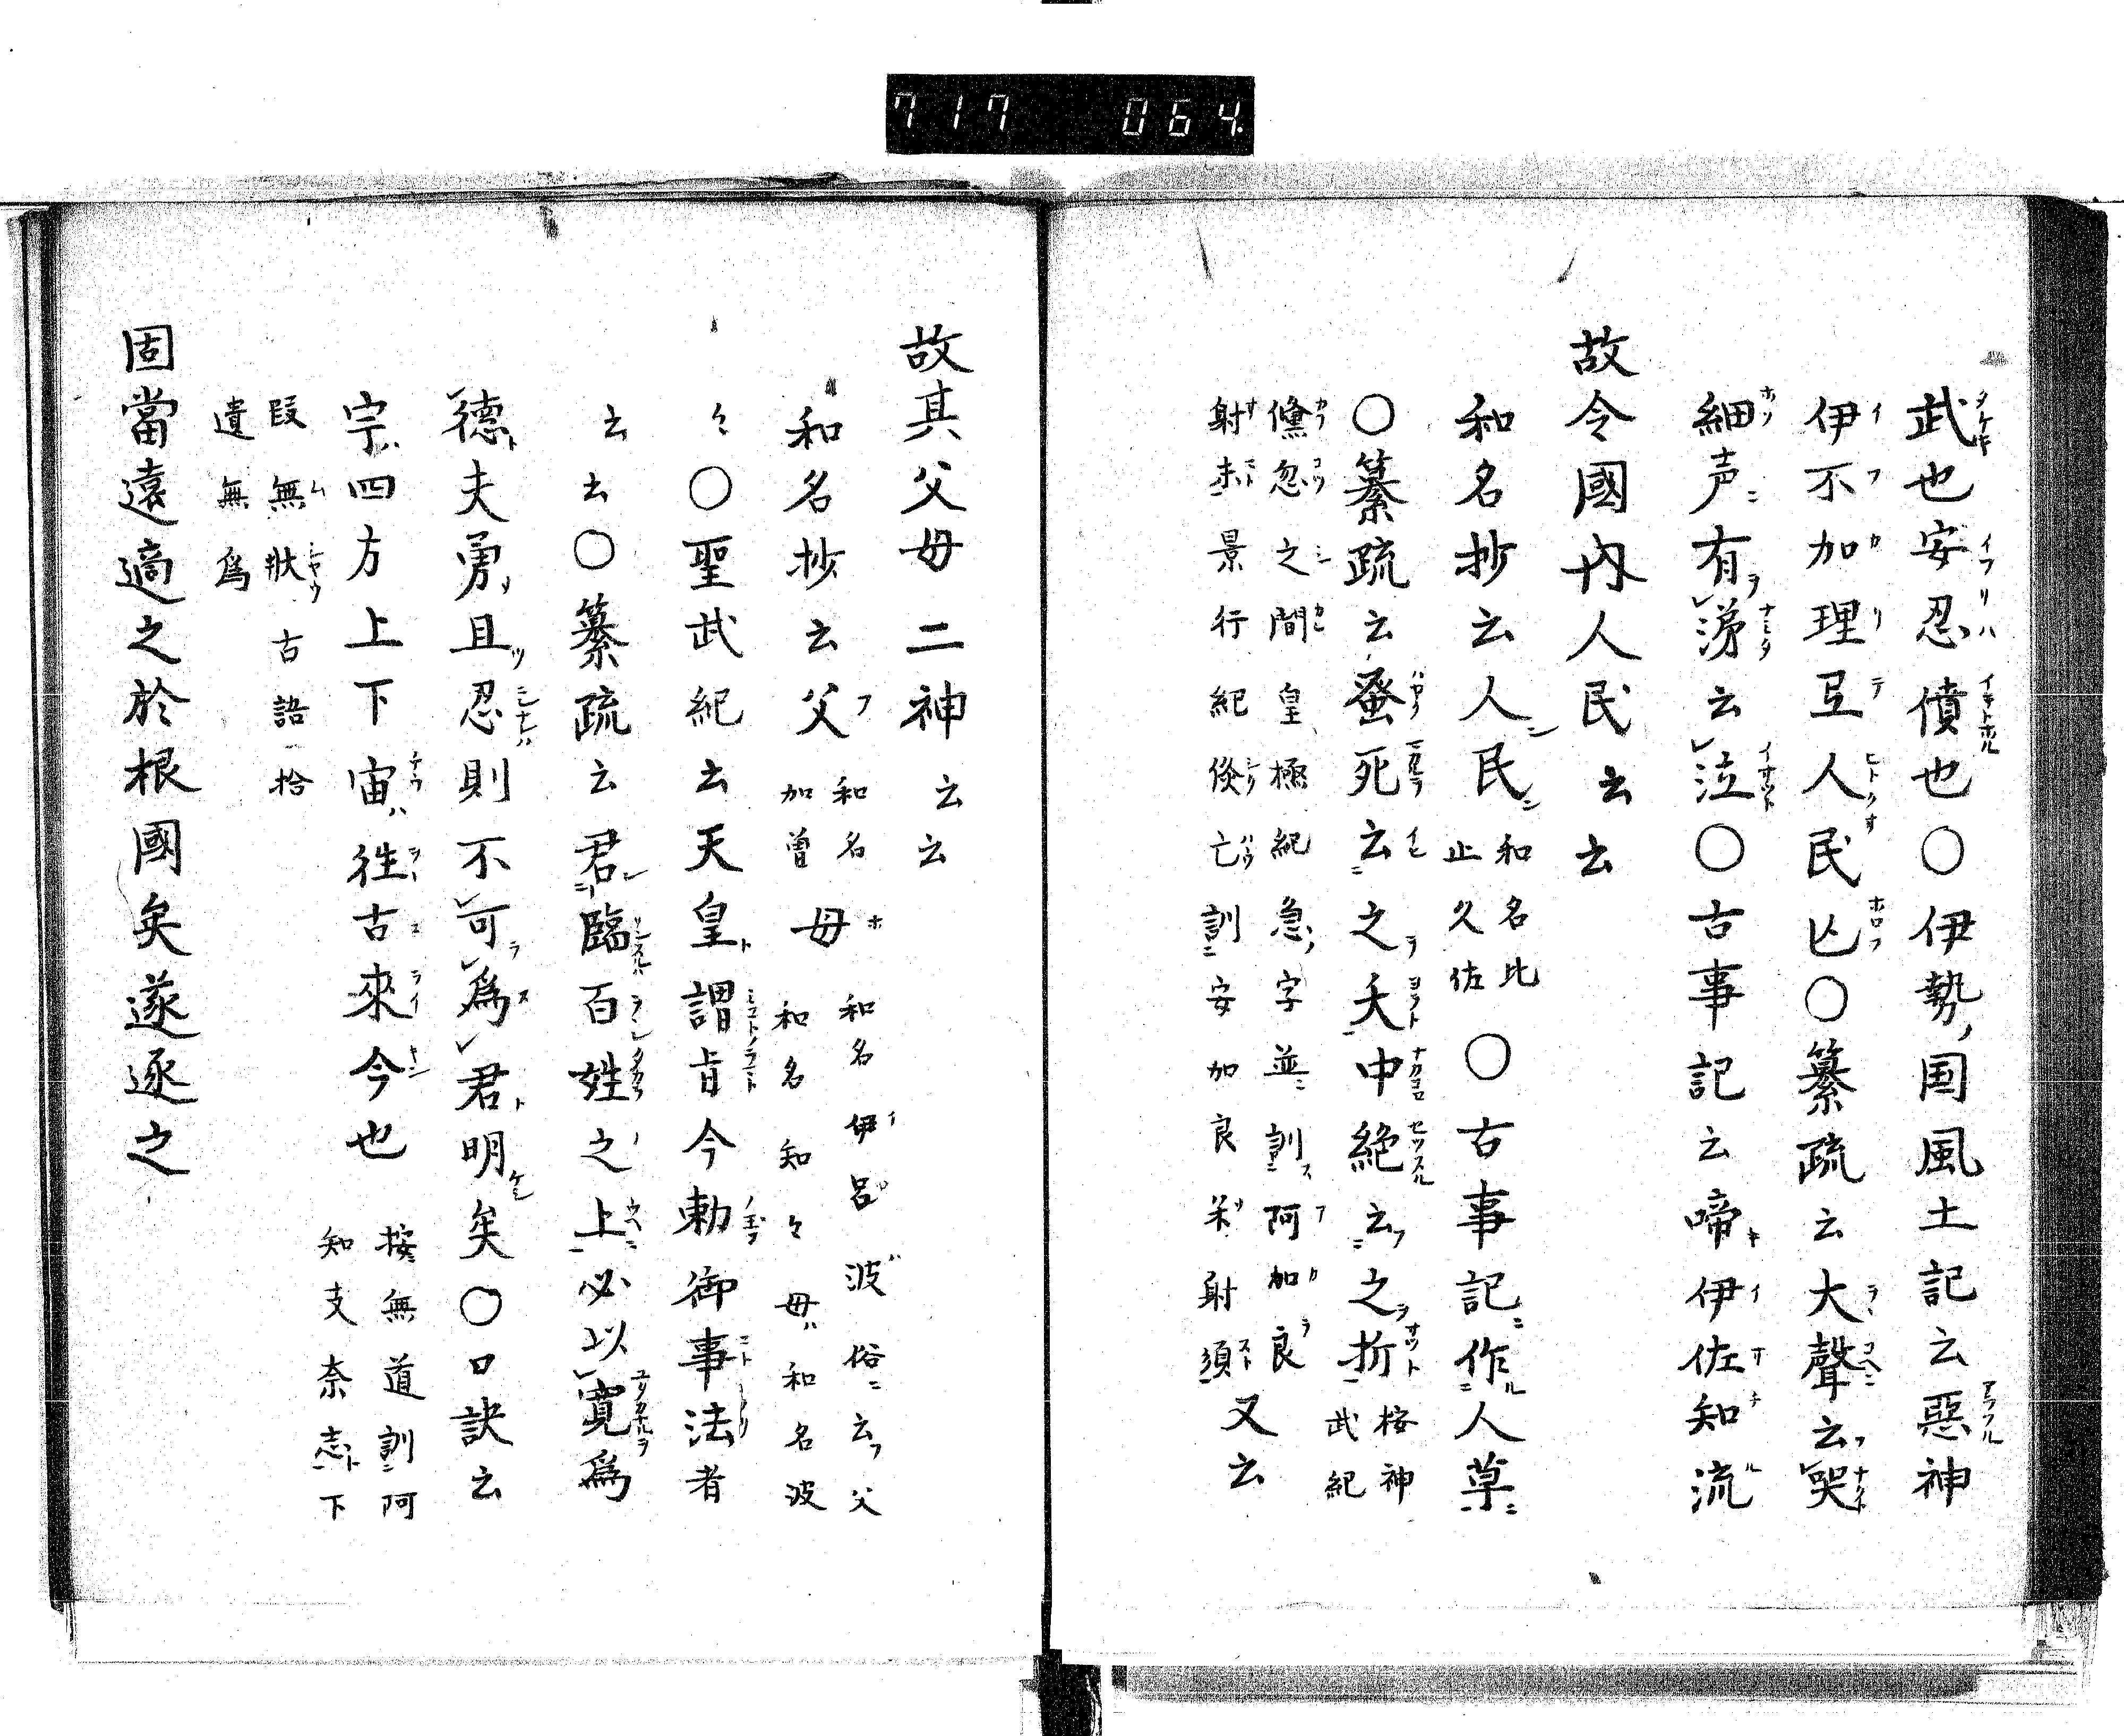 717 064
武也安忍債也〇伊勢ノ国風土記云惡神
伊不加理亘人民亾〇纂疏云大聲云哭
細声有涕云泣〇古事記云啼伊佐知流
故令國内人民云云
和名抄云人民和名比止久佐〇古事記作人草
〇纂疏云蚤死云之夭中絶云之折按神武紀
儵忽之間皇極紀急字並訓阿加良
射未景行紀倐亡訓安加良米射須又云
故其父母二神云云
和名抄云父和名加曽母和名知々母和名伊呂波俗云父母和名波
々〇聖武紀云天皇謂旨今勅御事法者
云云〇纂疏云君臨百姓之上必以寛爲
徳夫勇且忍則不可爲君明矣〇口訣云
宗四方上下宙往古來今也按無道訓阿知支奈志下
段無状古語拾
遺無爲
固當遠適之於根國矣遂逐之